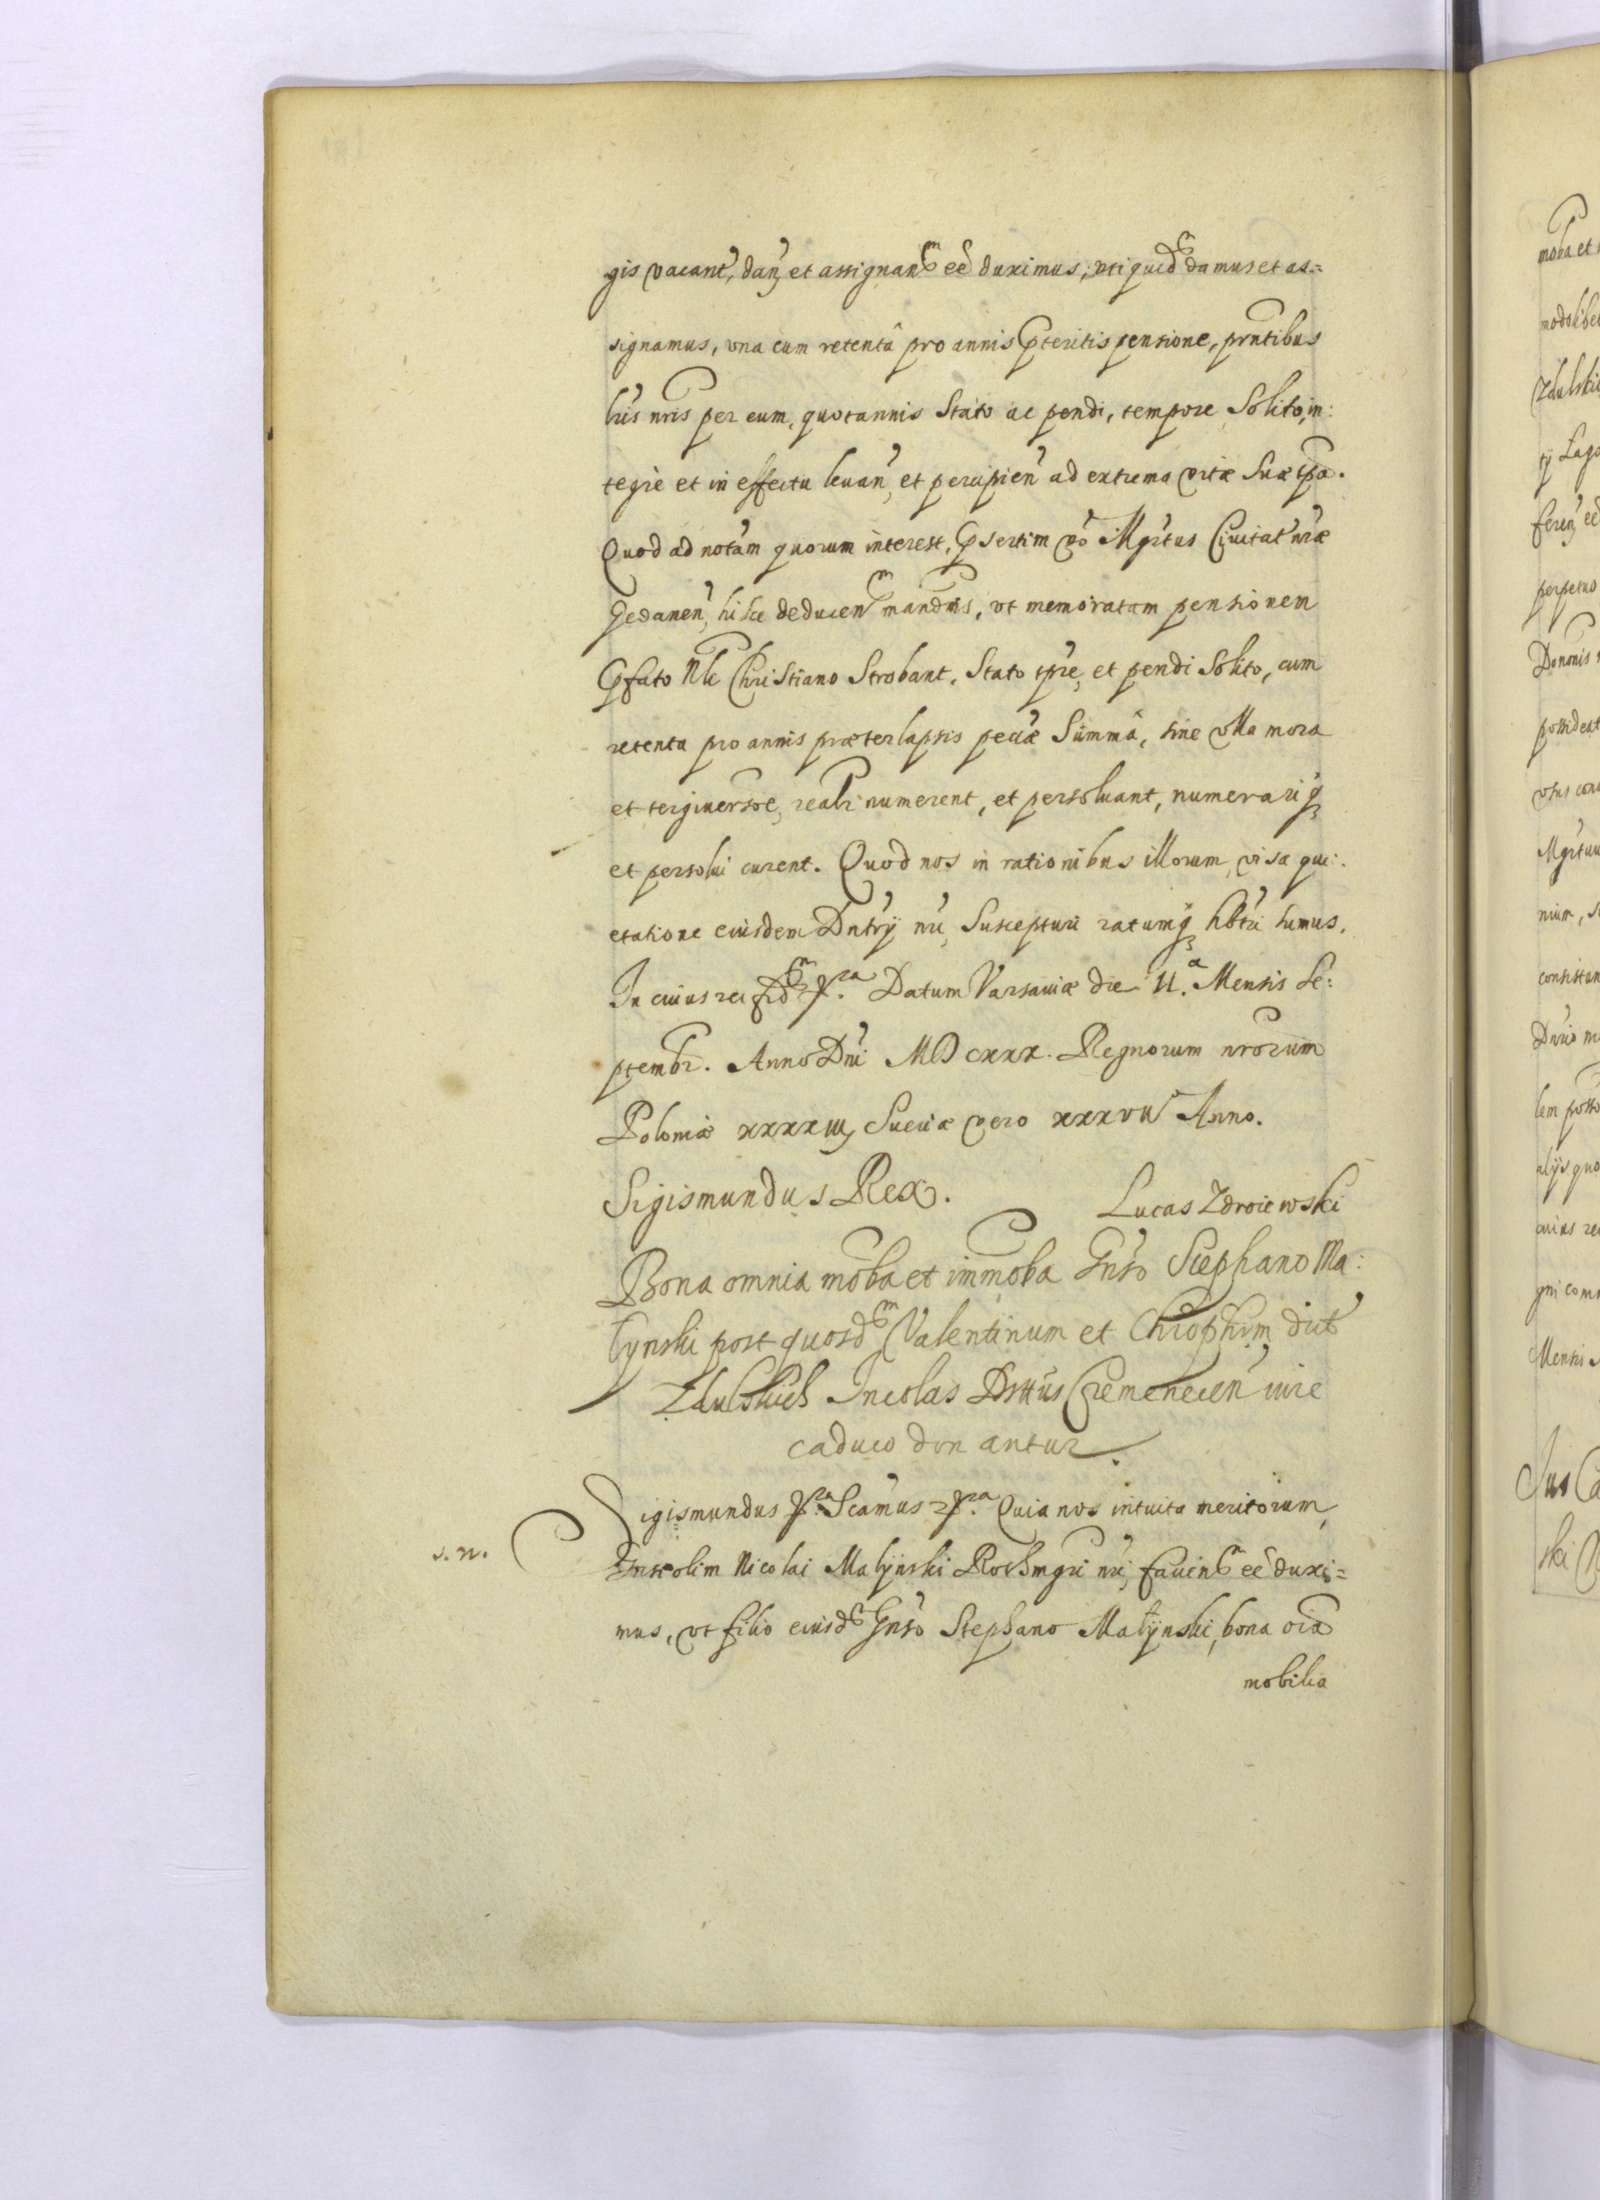 gis vacant, dan, et assignan᷑ eē duximus, uti quid᷑ damus et as=
signamus, una cum retentâ pro annis pteritis pensione, pntibus
lris nris per eum, quotannis Stato ac pendi, tempore Solito, in:
tegrè et in effectu levan, et percipien ad extrema vitæ Suæ tpa.
Quod ad notam quorum interest, psertim vō Mgrtus Civitat nræ
Gedanen, hisce deducen mandms, ut memoratam pensionem
pfato Nb Christiano Strobant, Stato tpre, et pendi Solito, cum
retenta pro annis præterlapsis pecæ Summâ, sine ulla mora
et tergiversoe, realr numerent, et persolvant, numerariq
et persolvi curent. Quod nos in rationibus illorum, visa qui:
etatione eiusdem Dntrÿ nri, Suscepturi ratumq hbtri sumus.
In cuius rei fid p.ra Datum Varsaviæ die 11.a Mensis Se:
ptembr. Anno Dni MDcxxx. Regnorum nrorum
Poloniæ xxxxiii, Sueciæ vero xxxvii Anno.
Sigismundus Rex. Lucas Zdroiewski
Bona omnia moba et immoba Gnso Stephano Ma:
lynski post quosd Valentinum et Chrophrm dict
Zdulskich Incolas Dsttus Cremenecen iure
caduco donantur.
s. n.
Sigismundus p.ra Scamus p.ra Quia nos intuitu meritorum,
Gnse olim Nicolai Malÿnski Rothmgri nri, faciend eē duxi=
mus, ut filio eiusd Gnso Stephano Malÿnski, bona oia
mobilia
moba et
perpetuo
Mensi
Jus Ca
ski